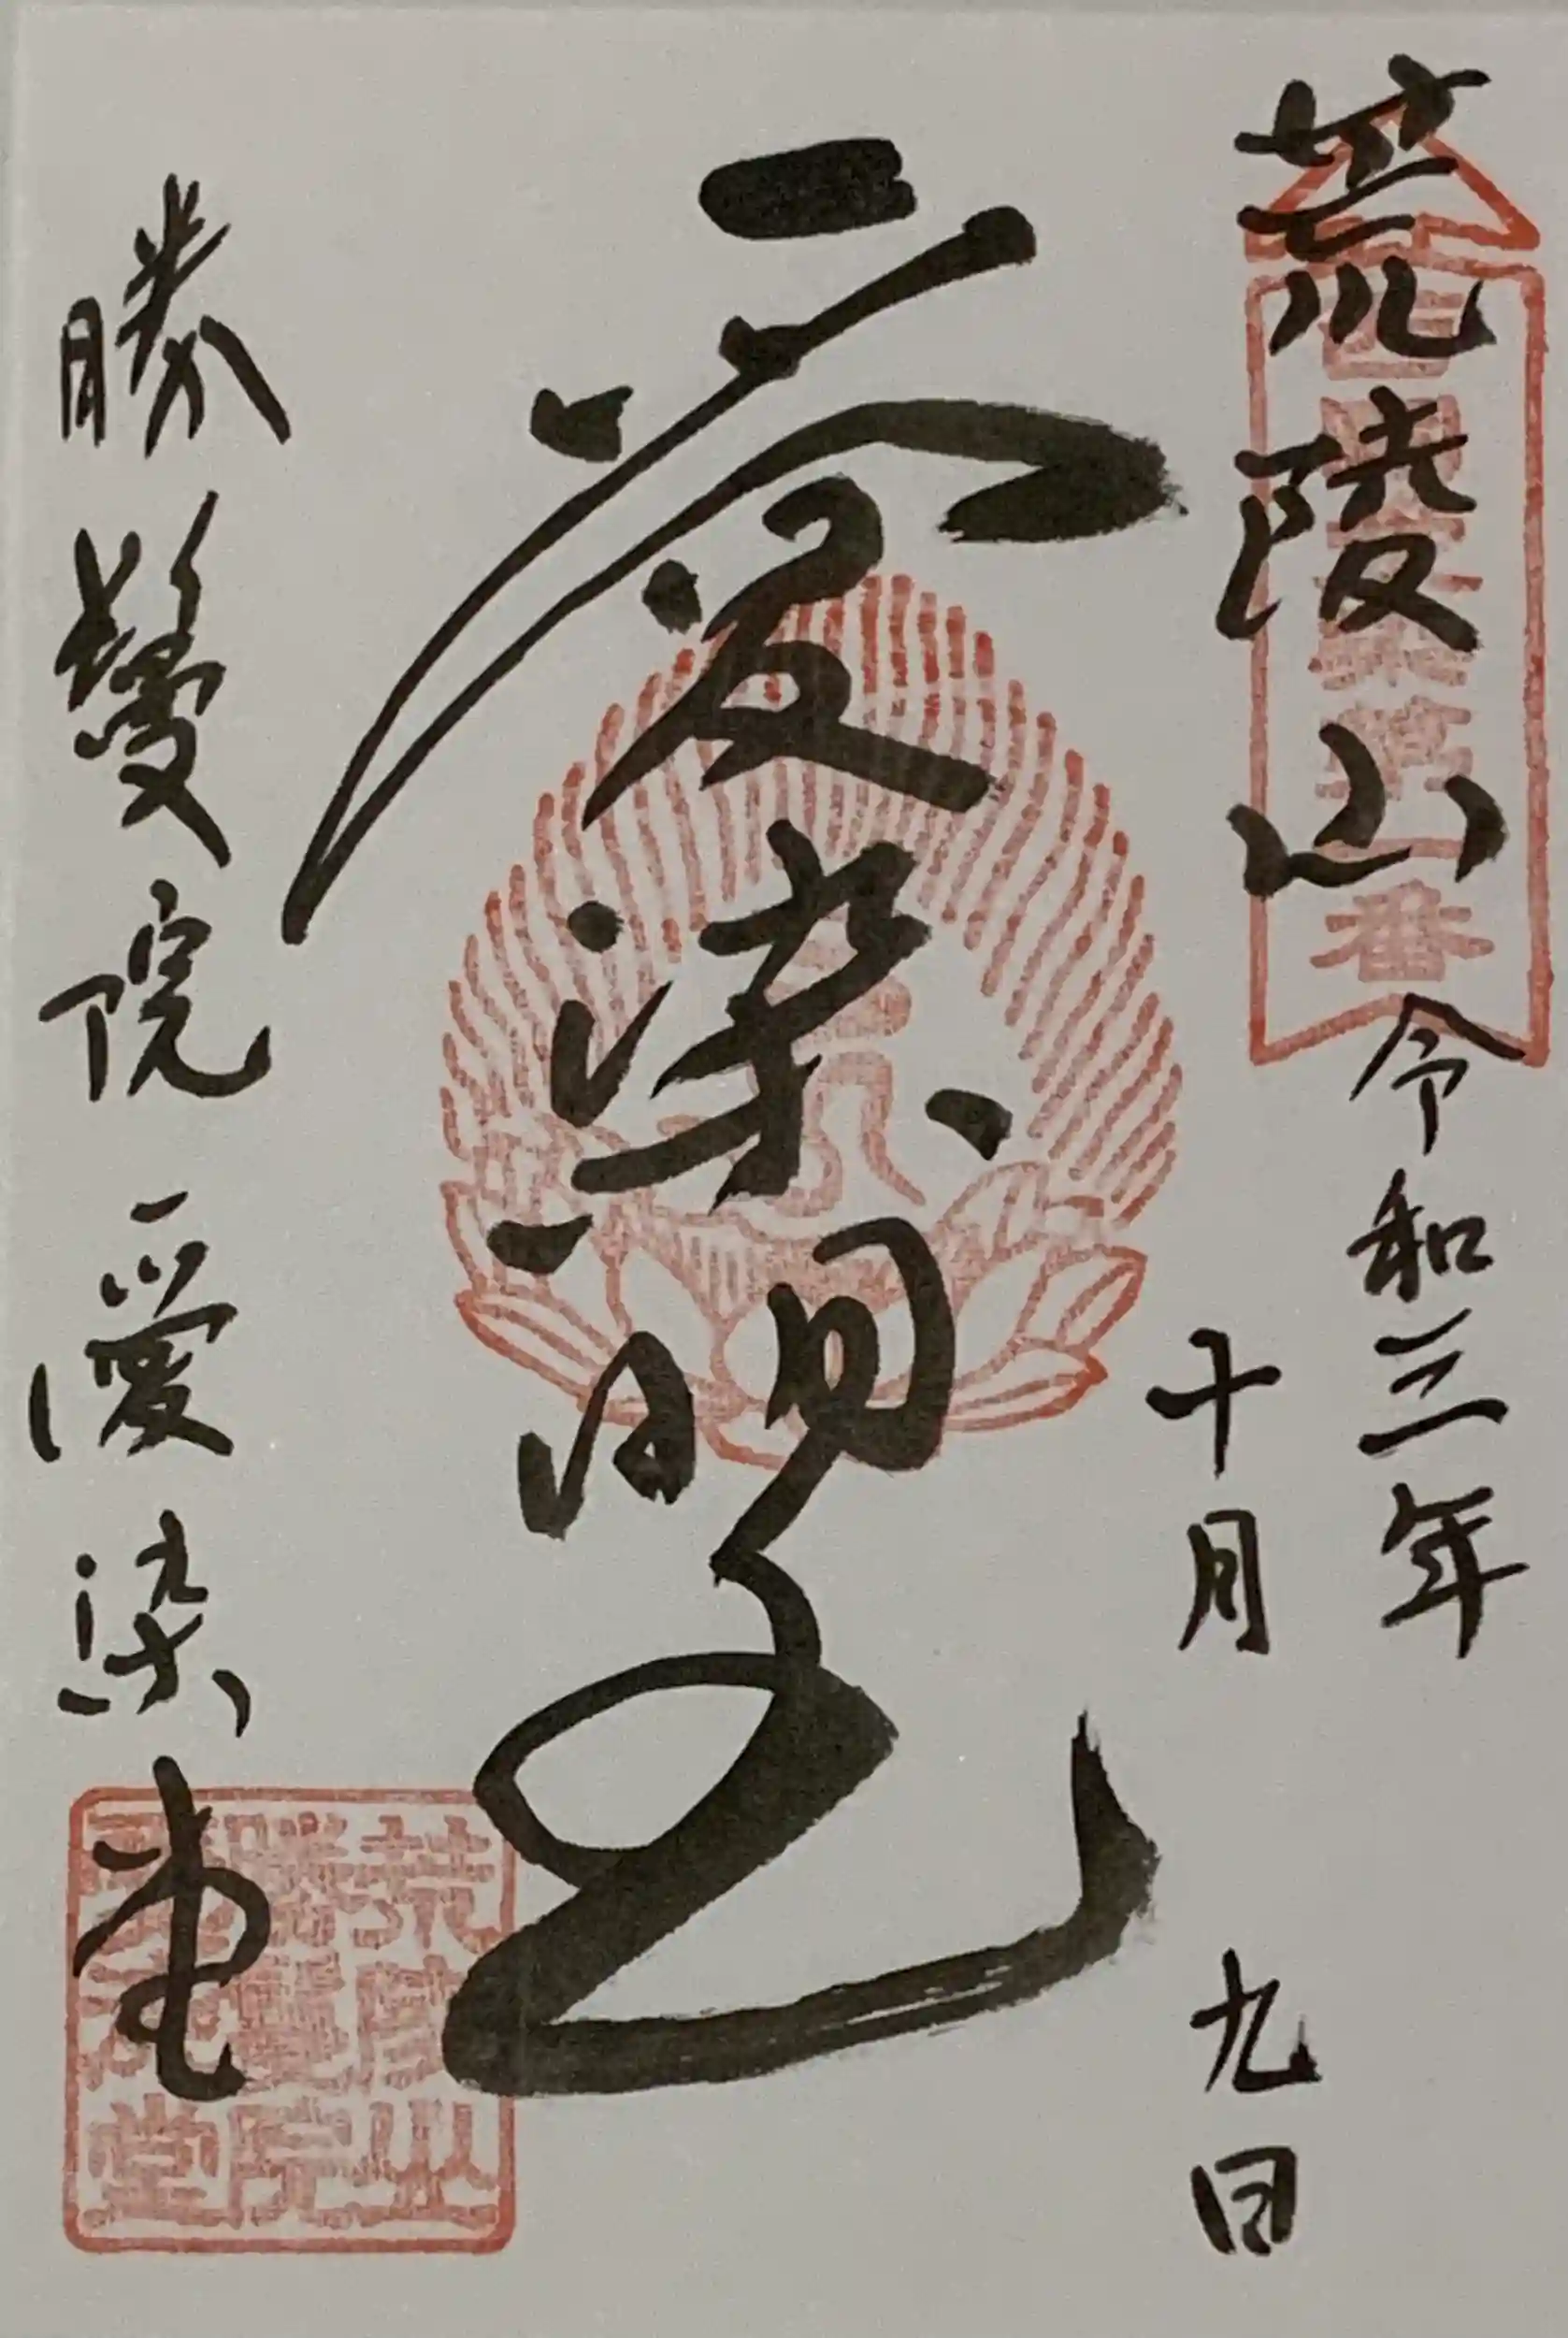 荒陵山
令和三年
十月
九日
愛染明王
勝鬘院愛染堂
荒陵山
勝鬘院
愛染堂